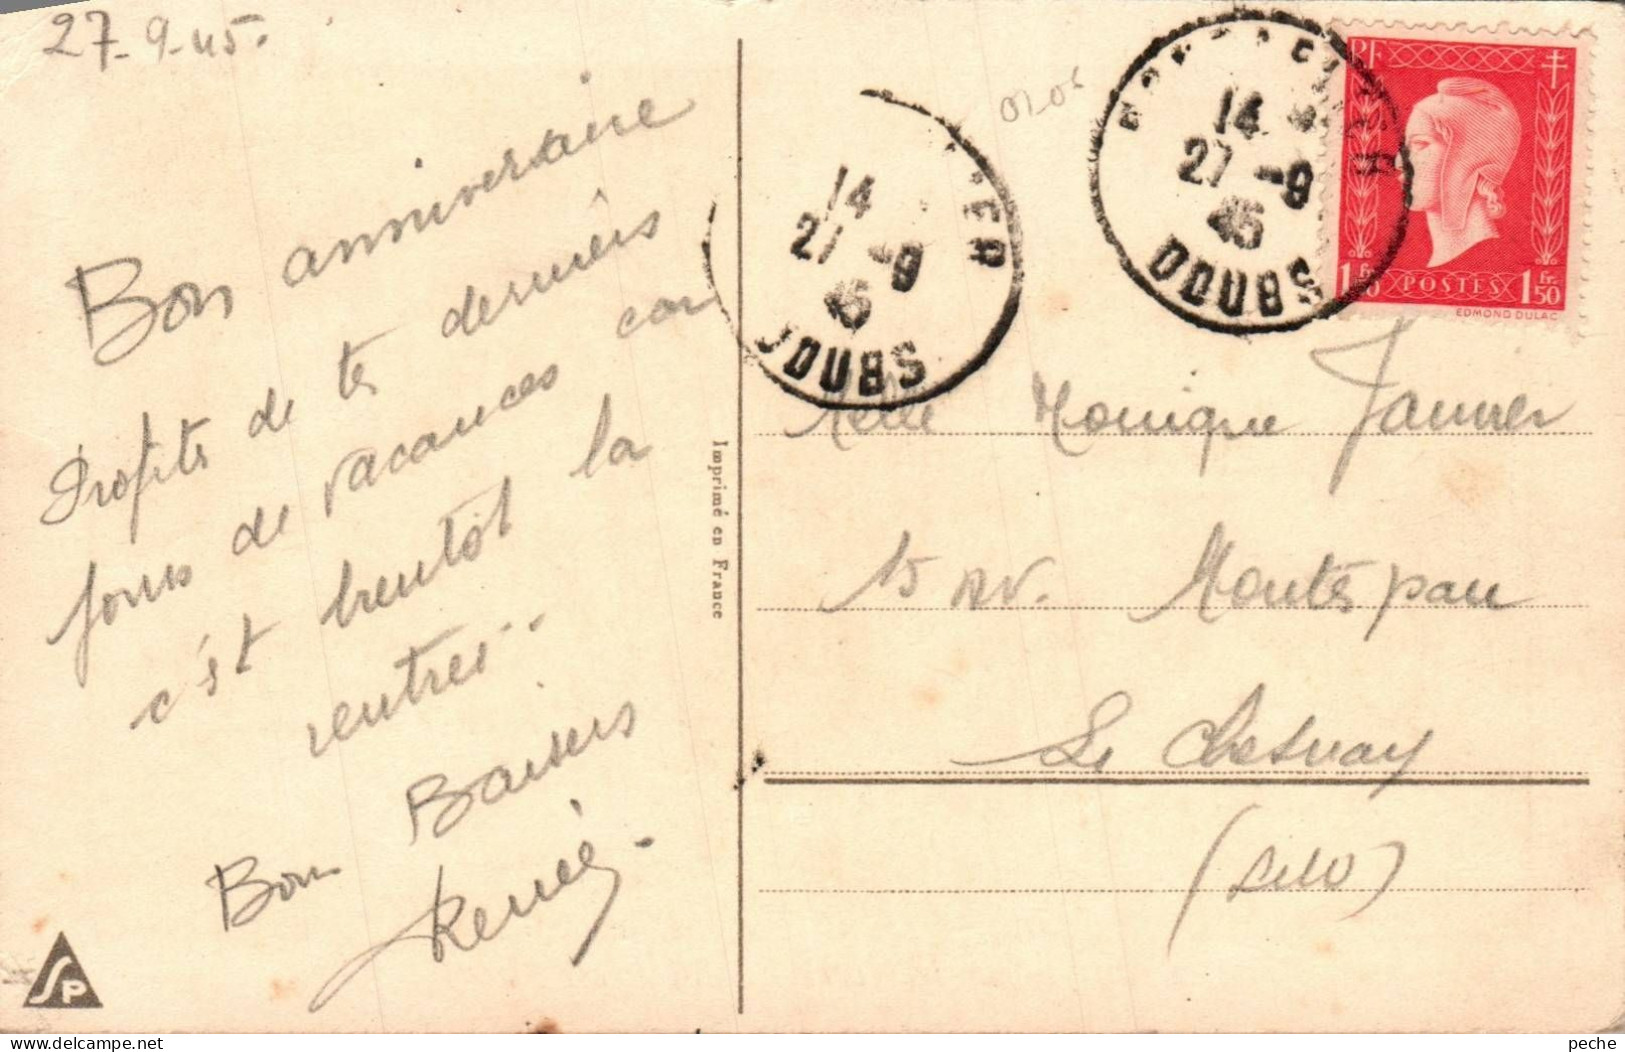 27-9-45.
Bon anniversaire
Profite de tes derniers
jours de vacances car
c'est bientôt la
rentrée..
Bons Baisers
Renée.
SP
Imprimé en France
14
27 -9
45
DOUBS
14
27 -9
45
DOUBS
RF
1Fr.50 POSTES 1Fr.50
EDMOND DULAC
Melle Monique Janner
15 av. Montespan
Le Chesnay
(S et O)
peche